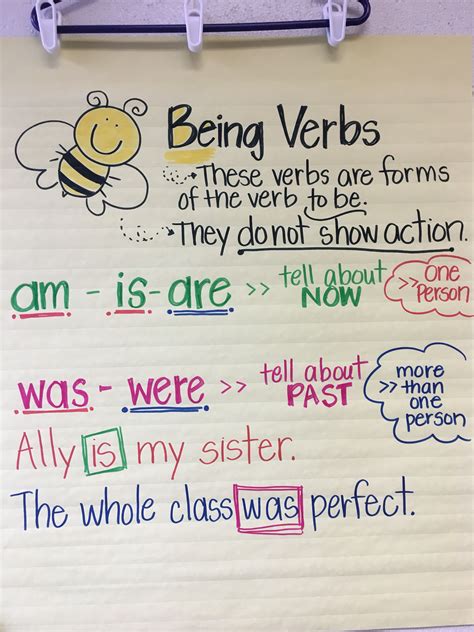 Being Verbs
These verbs are forms
of the verb to be.
They do not show action.
am - is - are >> tell about NOW >> one person
was - were >> tell about PAST >> more than one person
Ally is my sister.
The whole class was perfect.